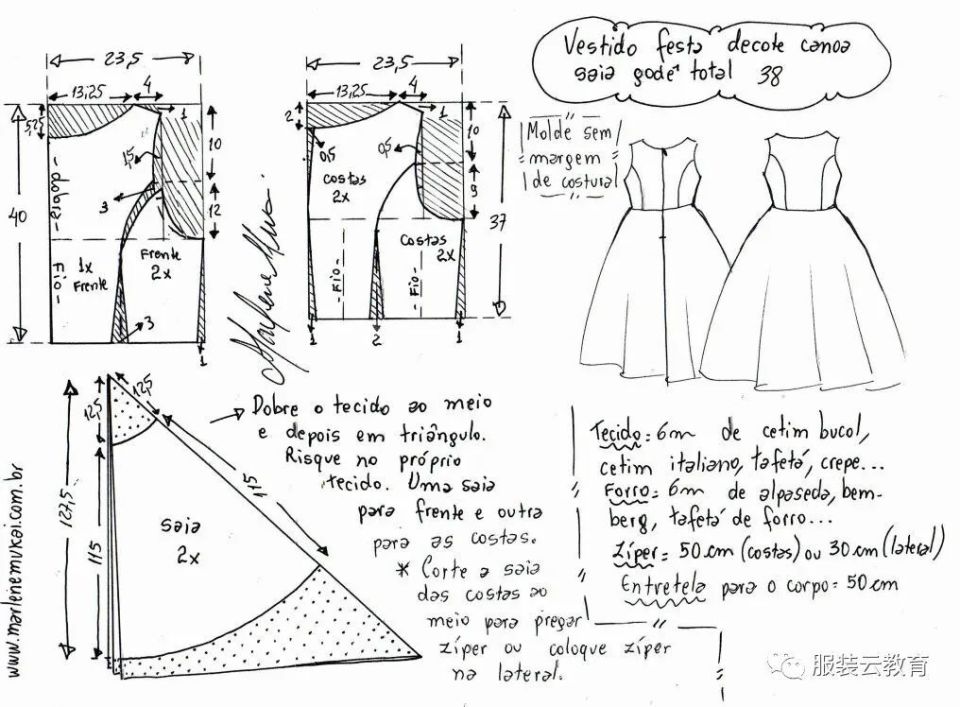 Vestido festa decote canoa
saia godê total 38
Molde sem
margem
de costura
23,5
13,25
4
1
5,25
10
1,5
12
3
40
dobra
Fio
1x
Frente
Frente
2x
3
1
23,5
13,25
4
1
2
0,5
0,5
10
9
37
costas
2x
Costas
2x
Fio
Fio
1
2
1
Marlene Mukai
12,5
12,5
115
127,5
115
saia
2x
www.marlenemukai.com.br
Dobre o tecido ao meio
e depois em triângulo.
Risque no próprio
tecido. Uma saia
para frente e outra
para as costas.
* Corte a saia
das costas ao
meio para pregar
zíper ou coloque zíper
na lateral.
Tecido = 6m de cetim bucol,
cetim italiano, tafetá, crepe...
Forro = 6m de alpaseda, bem-
berg, tafetá de forro...
Zíper = 50cm (costas) ou 30cm (lateral)
Entretela para o corpo = 50cm
服装云教育